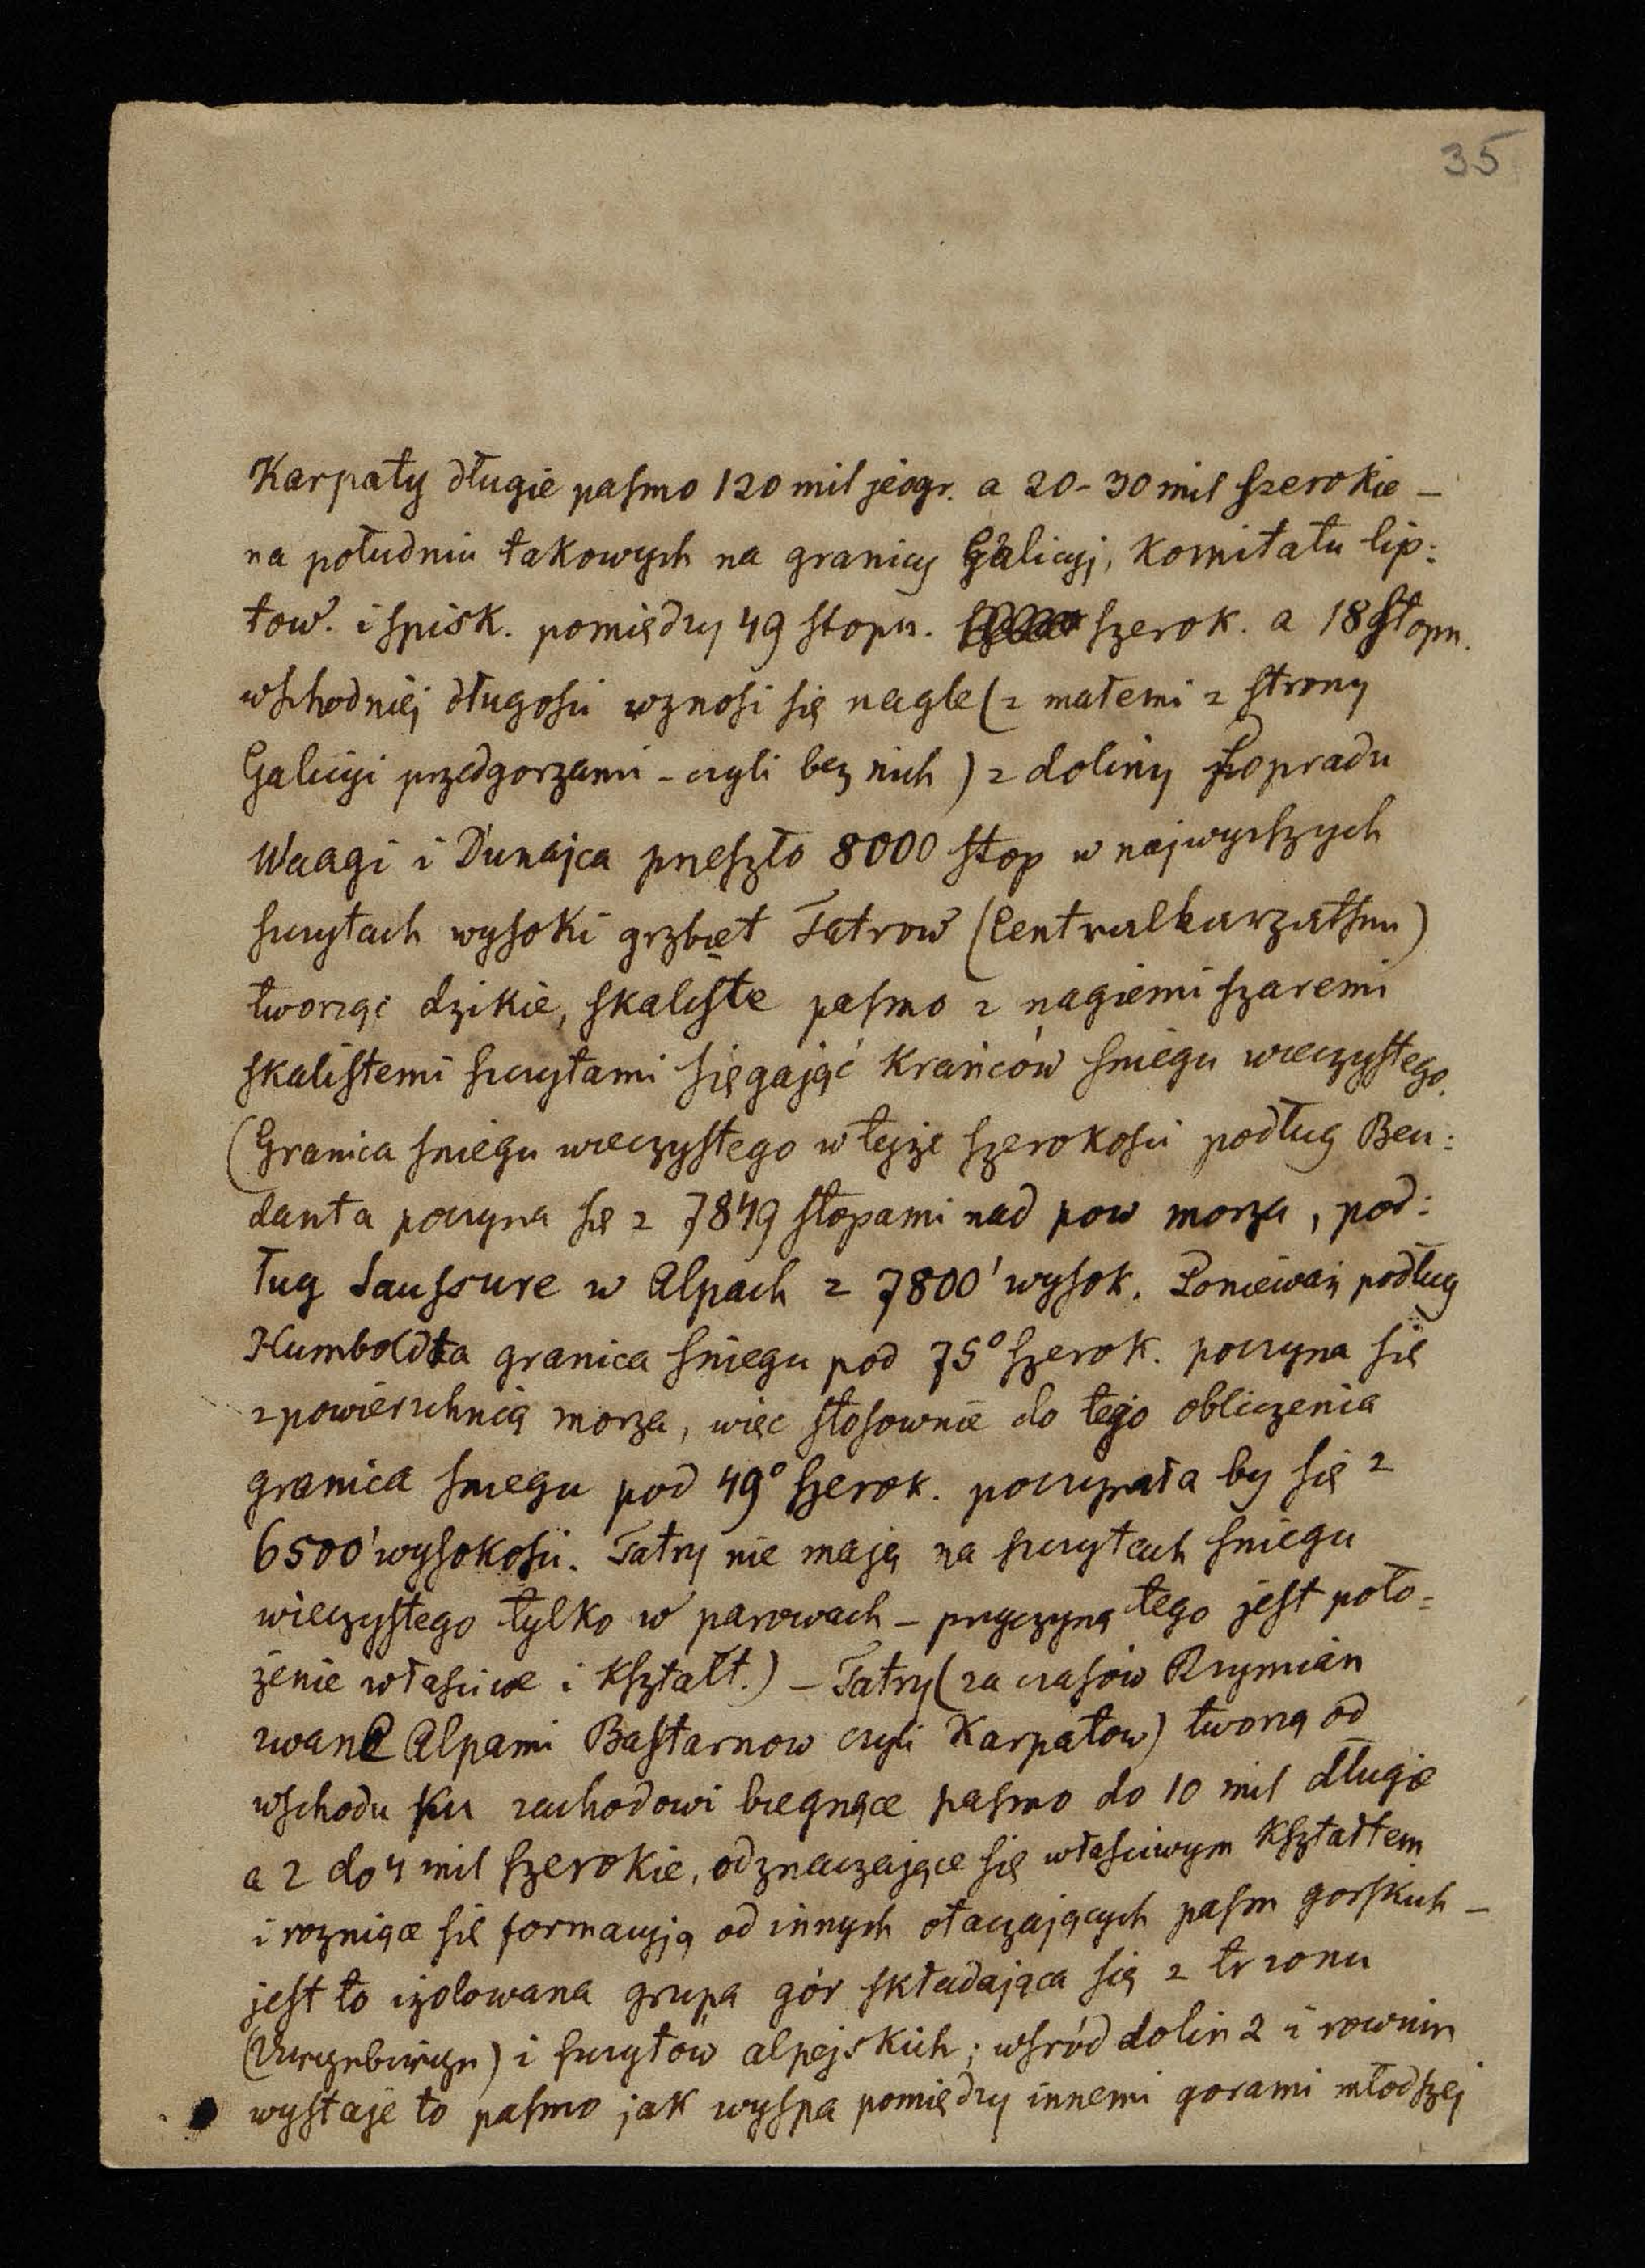 35
Karpaty długie pasmo 120 mil jeogr. a 20-30 mil szerokie –
na południu takowych na granicy Galicyi, Komitatu lip:
tow. i spisk. pomiędzy 49 stopn. szerok. a 18 stopn.
wschodniéj długości wznosi się nagle (z małemi z strony
Galicyi przedgorzami – czyli bez nich) z doliny Popradu
Waagi i Dunajca przeszło 8000 stop w najwyższych
szczytach wysoki grzbiet Tatrow (Centralkarpathen)
tworząc dzikie, skaliste pasmo z nagiemi szaremi
skalistemi szczytami sięgając krańców śniegu wieczystego.
(Granica śniegu wieczystego w tejże szerokości podług Beu:
danta poczyna się z 7849 stopami nad pow morza, pod:
ług Saussure w Alpach z 7800' wysok. Ponieważ podług
Humboldta granica śniegu pod 75° szerok. poczyna się
z powierzchnią morza, więc stosownie do tego obliczenia
granica śniegu pod 49° szerok. poczynała by się z
6500' wysokości. Tatry nie mają na szczytach śniegu
wieczystego tylko w parowach – przyczyną tego jest poło=
żenie właściwe i kształt.) – Tatry (za czasów Rzymian
zwane Alpami Bastarnow czyli Karpatow) tworzą od
wschodu ku zachodowi biegnące pasmo do 10 mil długie
a 2 do 4 mil szerokie, odznaczające się właściwym kształtem
i rozniące się formacyją od innych otaczających pasm gorskich –
jest to izolowana grupa gór składająca się z trzonu
i szczytów alpejskich; wśród dolin 2 i rownin
wystaje to pasmo jak wyspa pomiędzy innemi gorami młodszej